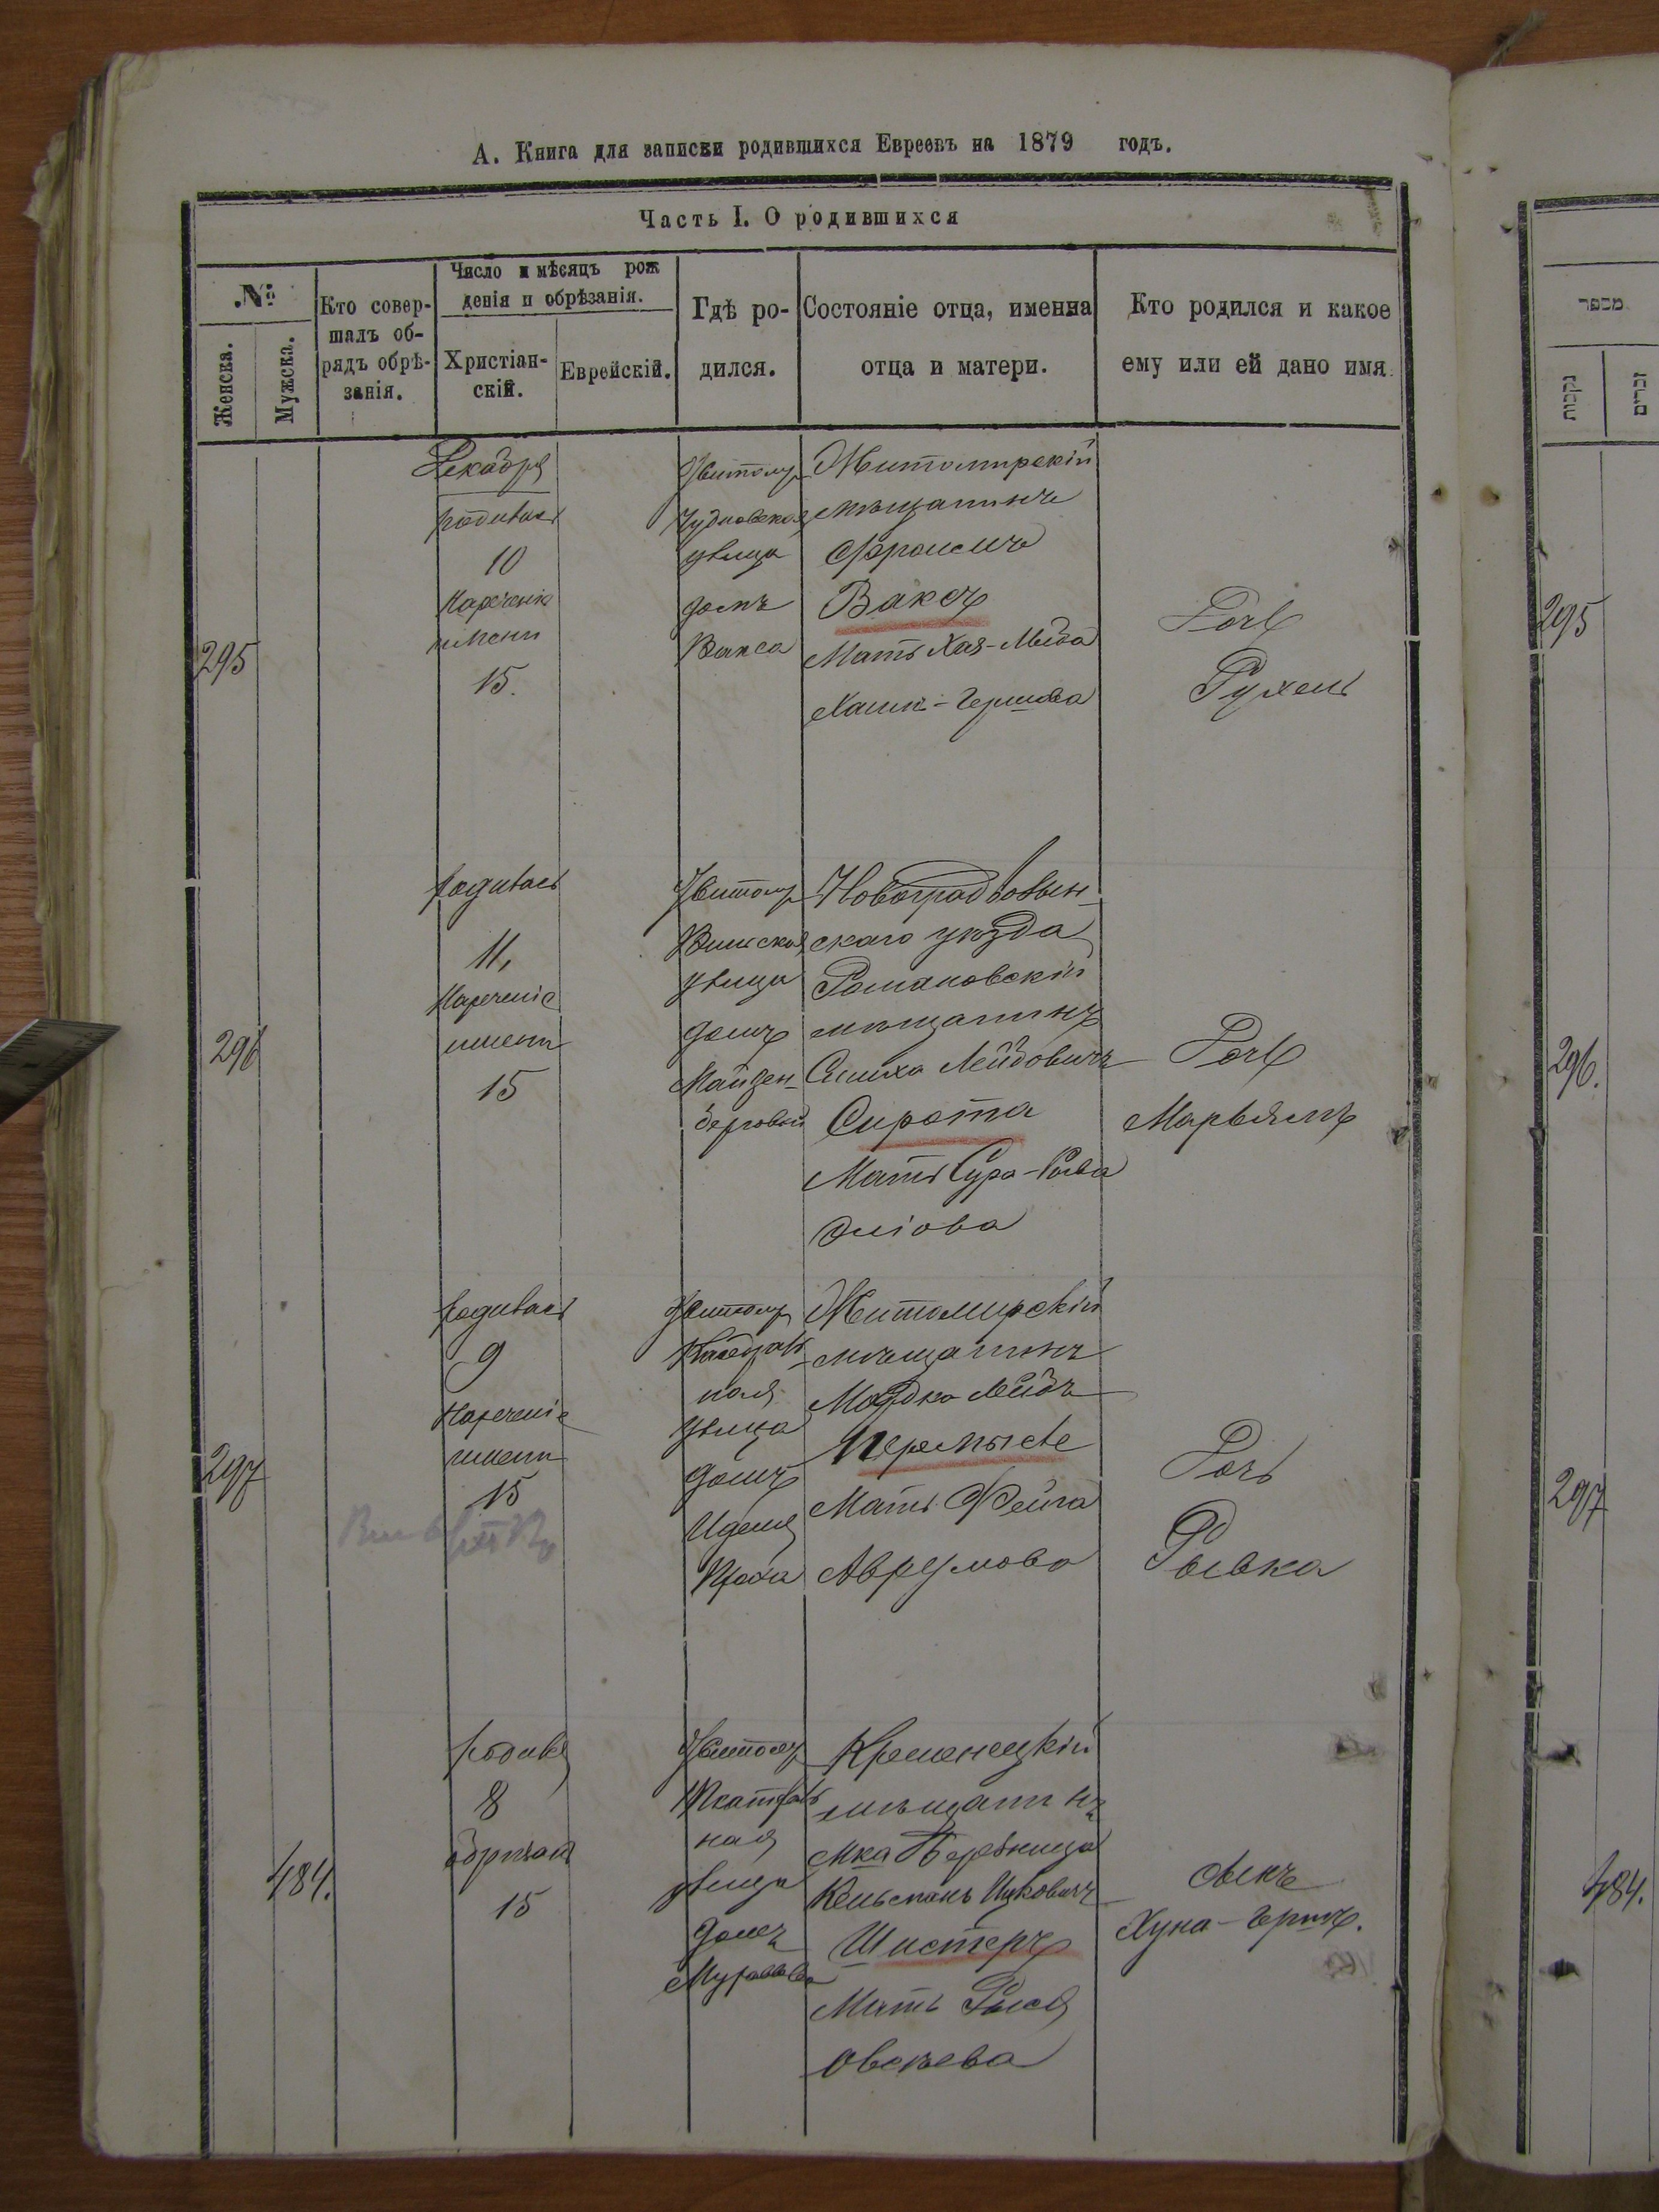 А. Книга для записки родившихся Евреевъ на 1879 годъ.
Часть I. О родившихся
№
Женска.
Мужска.
Кто совер-
шалъ об-
рядъ обрѣ-
занія.
Число и мѣсяцъ рож
денія и обрѣзанія.
Христіан-
скій.
Еврейскій.
Гдѣ ро-
дился.
Состояніе отца, именна
отца и матери.
Кто родился и какое
ему или ей дано имя.
295
Декабря
родилась
10
Нареченіе
имени
15.
Житомир
Чудновская
улица
домъ
Вакса
Житомирскій
мѣщанинъ
Фроимъ
Ваксъ
Мать Хая-Лыба
Хаим-Гершова
Дочь
Рухель
296
родилась
11,
Нареченіе
имени
15
Житомир
улица
домъ
Майзен-
берговой
Новоградволын-
скаго уѣзда
Романовскій
мѣщанинъ
Симха Лейбовичъ
Сирота
Мать Сура-Рыва
Эліова
Дочь
Марьямъ
297
родилась
9
Нареченіе
имени
15
Житомир
Кафедраль
ная
улица
домъ
Житомирскій
мѣщанинъ
Мордко Лейбъ
Перемысле
Мать Фейга
Аврумова
Дочь
Рывка
484.
родился
8
обрѣзан
15
Житомир
ная
улица
домъ
Кременецкій
мѣщанинъ
мка Бережница
Кельманъ Ицковичъ
Шистеръ
Мать Рыся
Овсѣева
сынъ
Хуна-Гершъ.
מספר
נקבות
זכרים
295
296.
297
484.